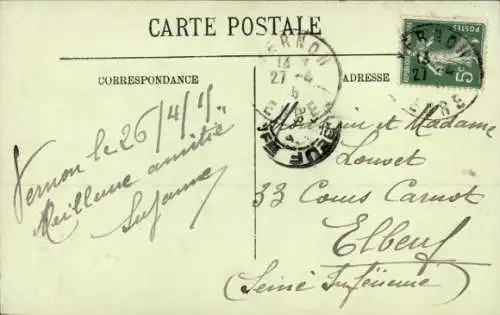 CARTE POSTALE
CORRESPONDANCE
ADRESSE
Vernon le 26/4/15
Meilleure amitié
Suzanne
Monsieur et Madame
Louvet
33 Cours Carnot
Elbeuf
(Seine Inférieure)
VERNON
27 - 4
ELBEUF
5c